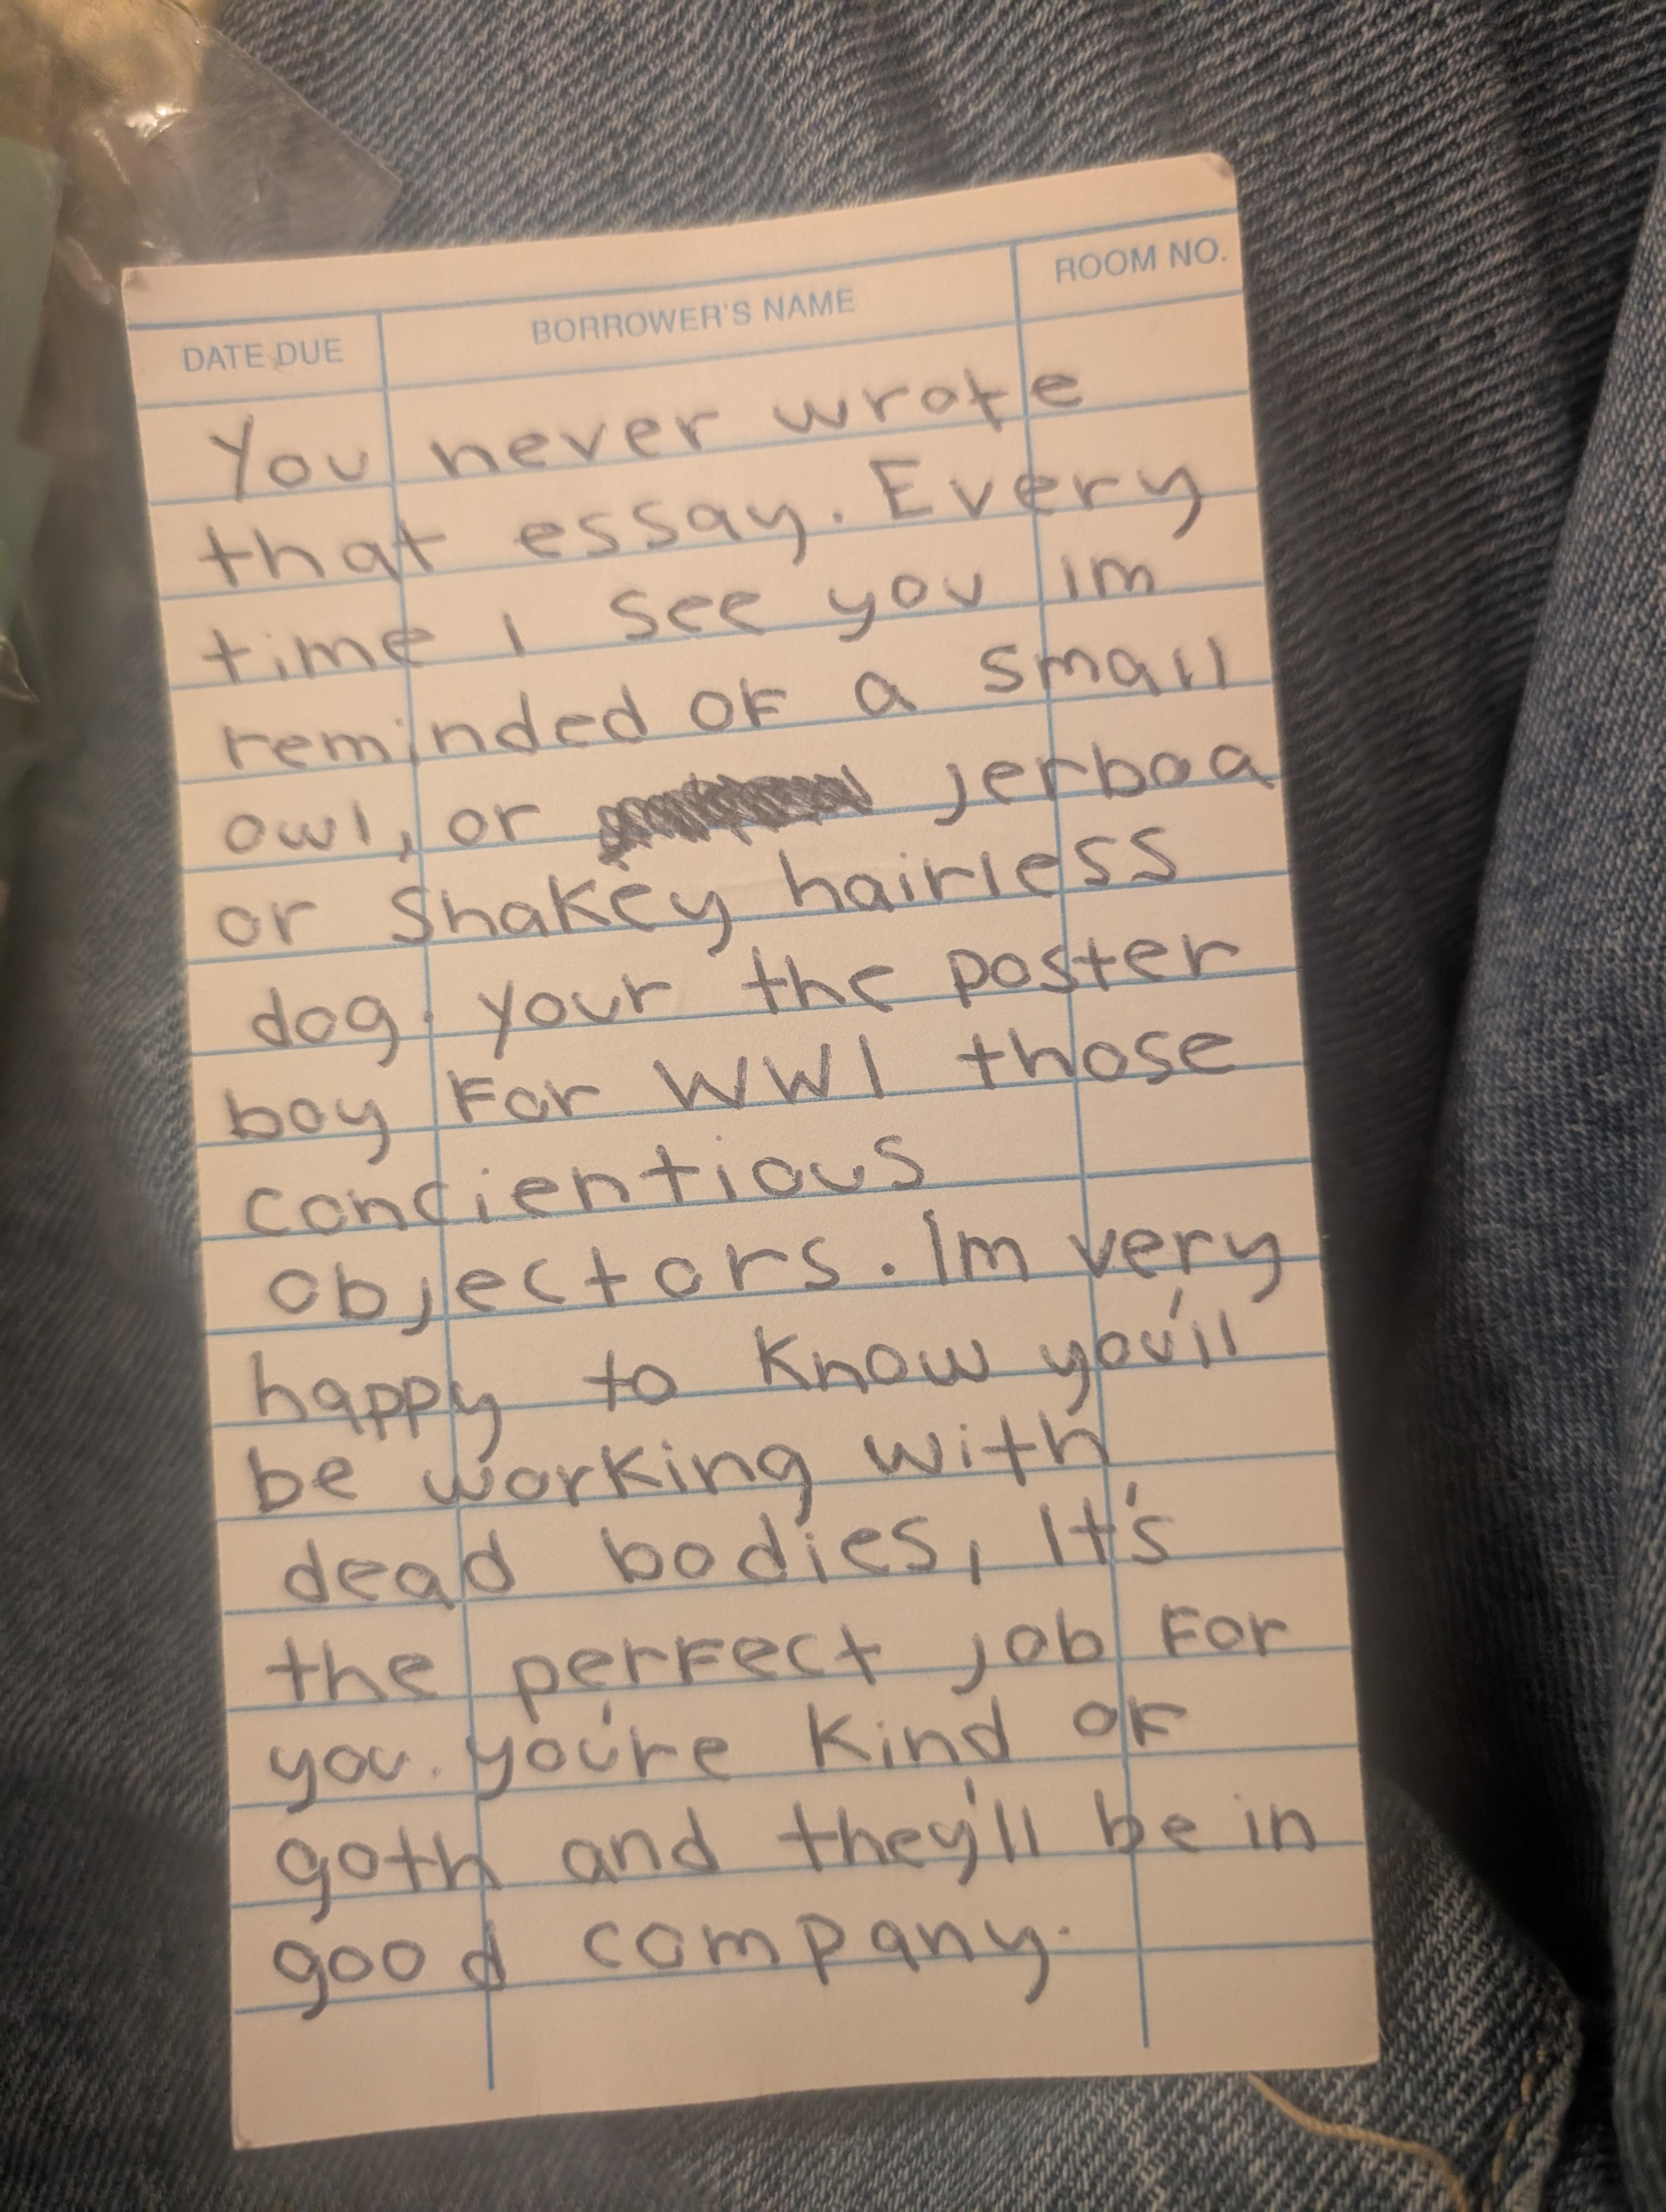 DATE DUE BORROWER'S NAME ROOM NO.
You never wrote
that essay. Every
time I see you im
reminded of a small
owl, or jerboa
or Shakey hairless
dog. your the poster
boy for WWI those
concientious
objectors. Im very
happy to know you'll
be working with
dead bodies, It's
the perfect job for
you. you're kind of
goth and they'll be in
good company.